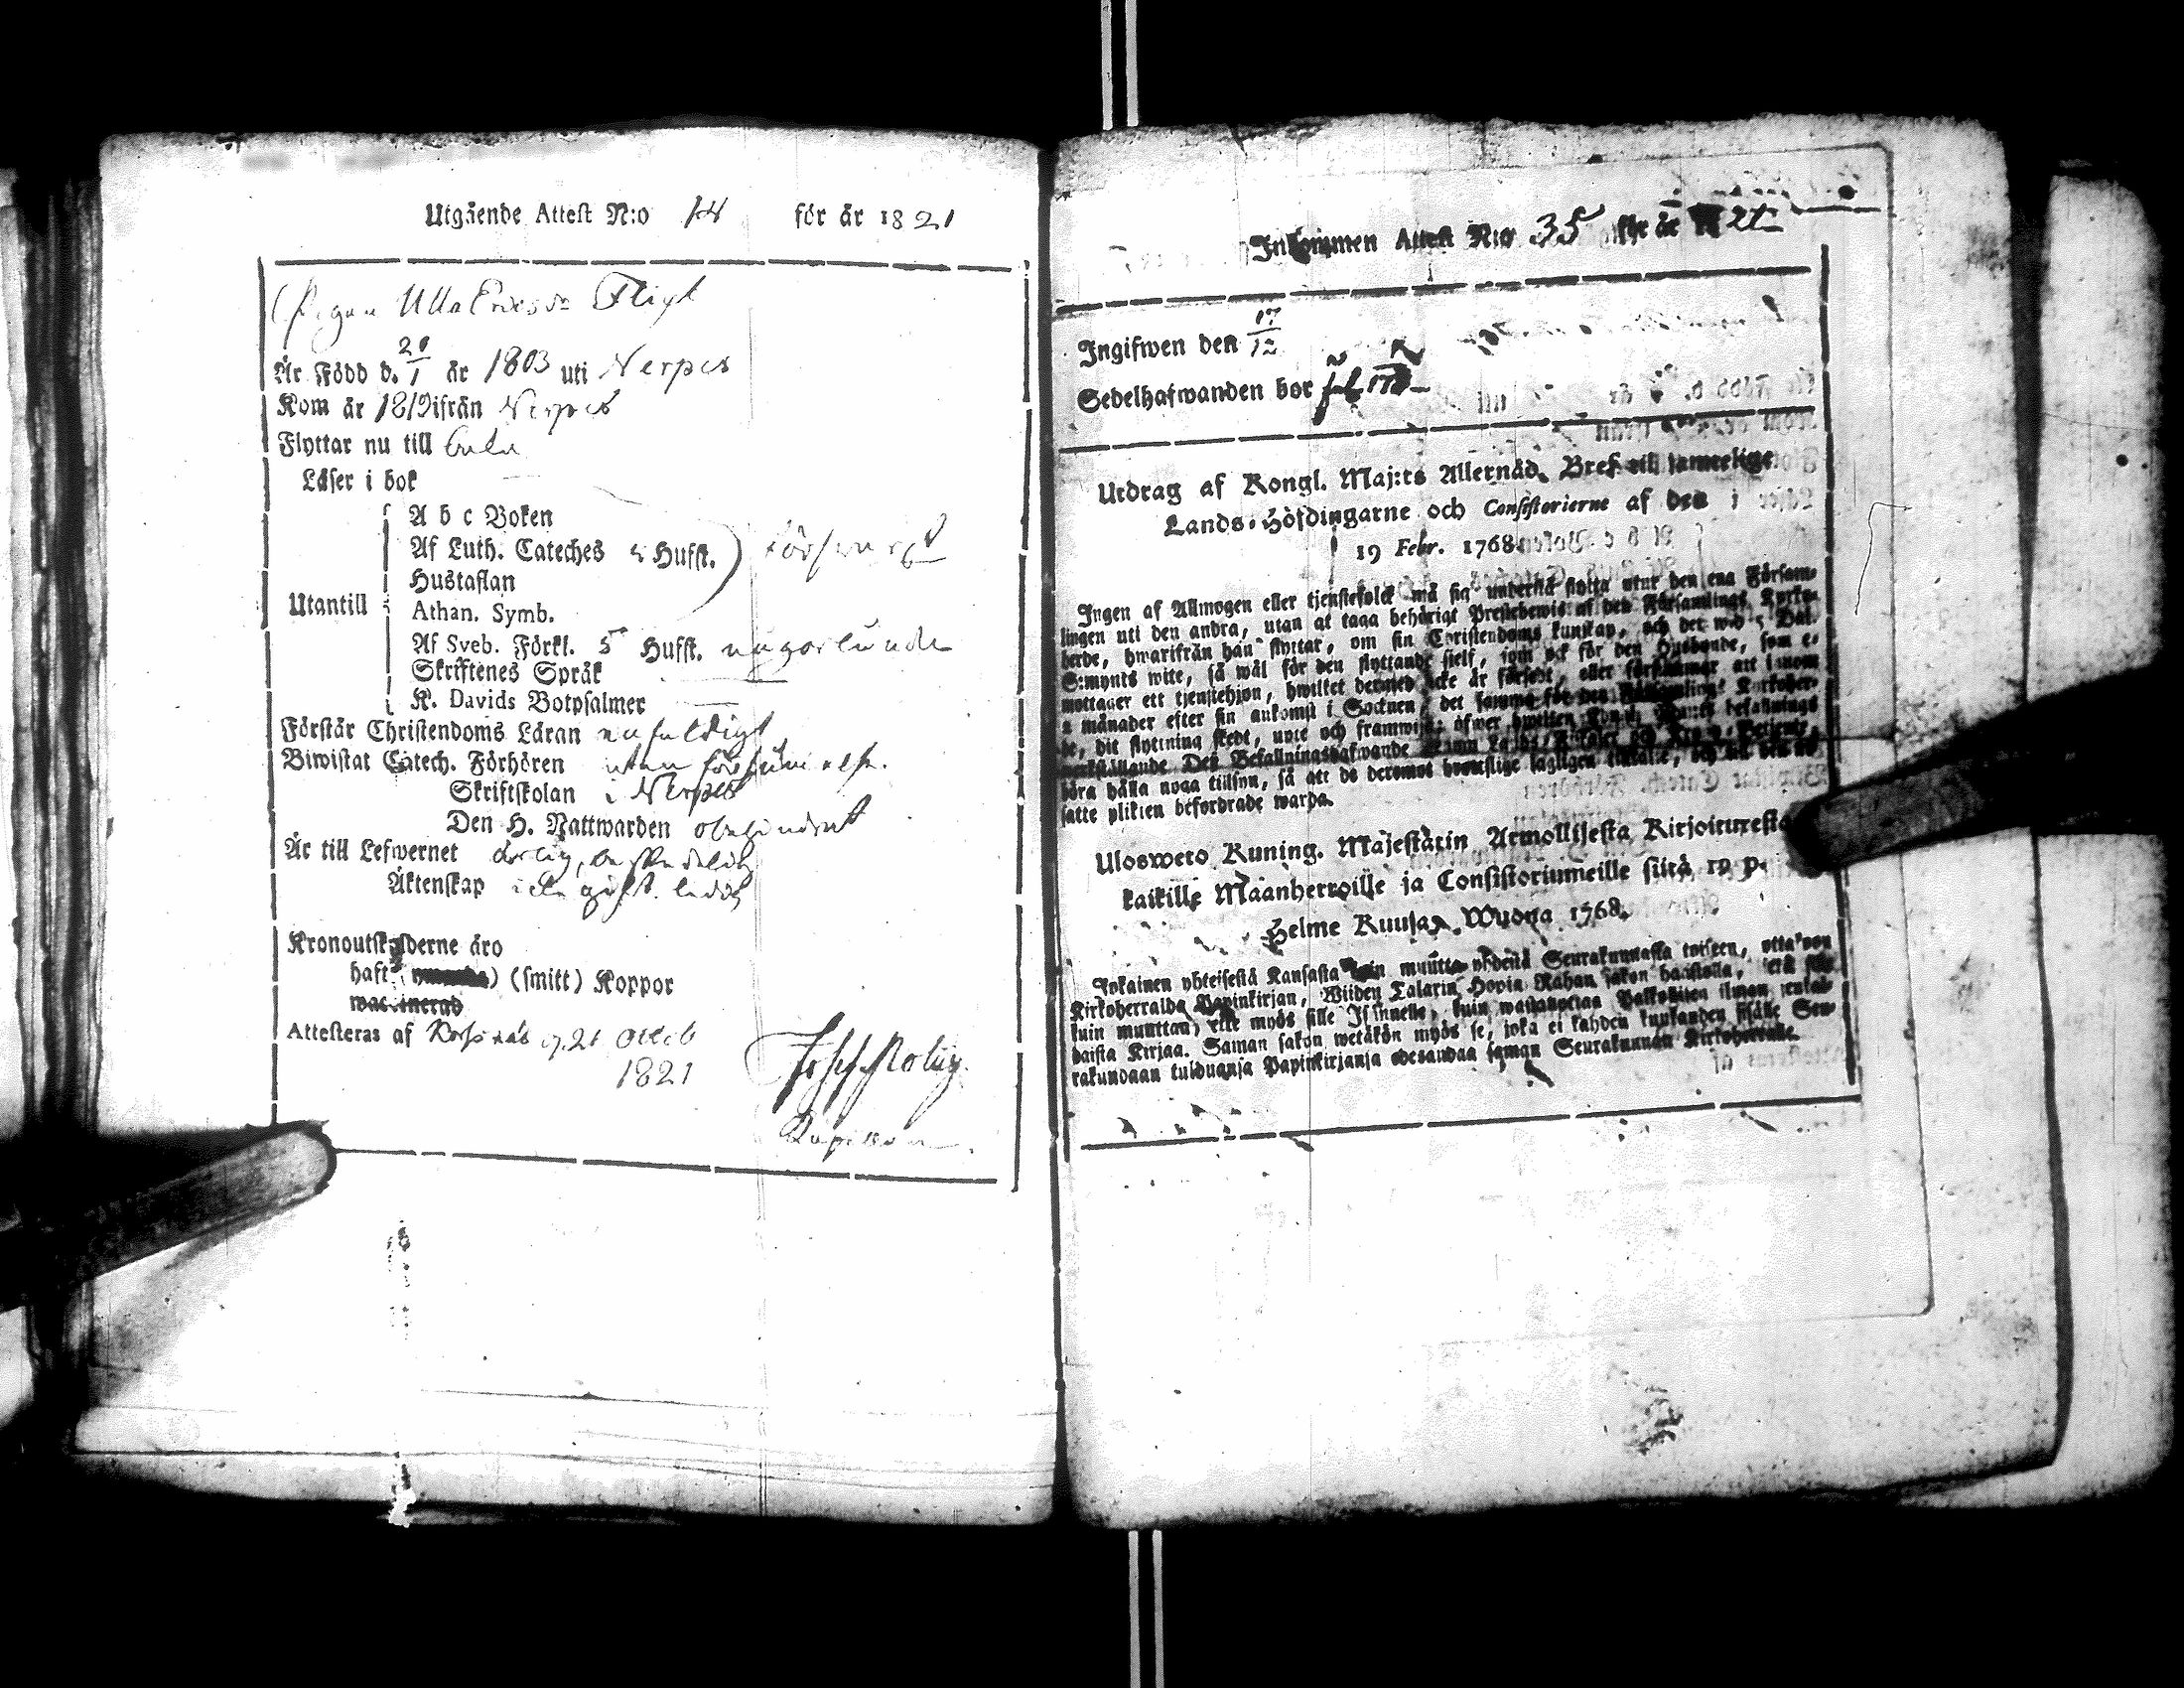 Utgående Attest N:o 14 för år 1821
Pigan Ulla Ersdr Fligt
Är Född d. 20/1 år 1803 uti Nerpes
Kom år 1819 ifrån Nerpes
Flyttar nu till
Läser i bok
A b c Boken
Af Luth. Cateches 5 Hufst. försvarl
Hustaflan
Utantill
Athan. Symb.
Af Sveb. Förkl. 5 Hufst. någorlunda
Skriftenes Språk
K. Davids Botpsalmer
Förstår Christendoms Läran enfaldigt
Biwistat Catech. Förhören utan försummelse.
Skriftskolan i Nerpes
Den H. Nattwarden obehindrat
Är till Lefwernet ärlig, beskedelig
Äktenskap icke gift. ledig
Kronoutskylderne äro
haft (smitt) Koppor
waccinerad
Attesteras af Korsnäs d. 21 Octob
1821
Kapellan
Inkommen Attest N:o 35 för år 21
Ingifwen den 17/12
Sedelhafwanden bor
Utdrag af Kongl. Maj:ts Allernåd. Bref till samtelige
Lands-Höfdingarne och Consistorierne af den
19 Febr. 1768
Ingen af Allmogen eller tjenstefolck må sig understå flytta utur den ena Försam-
lingen uti den andra, utan at taga behörigt Prestebewis af den Församlings Kyrko-
herde, hwarifrån han flyttar, om sin Christendoms kunskap, och det wid 5 Dal.
S:mynts wite, så wäl för den flyttande sielf, som ock för den Husbonde, som e-
mottager ett tjenstehjon, hwilket dermed icke är försedt, eller försummar att innom
2 månader efter sin ankomst i Socknen, det samma för den Församlings Kyrkoher-
de, dit flyttning skedt, upte och framwisa; öfwer hwilken Kongl. Maj:ts befallnings
werkställande Des Befallningshafwande
böra hålla noga tillsyn, så att de deremot brottslige lagligen tiltalte, och til den ut-
satte plikten befordrade warda.
Ulosweto Kuning. Majestätin Armollisesta Kirjoituxesta
kaikille Maanherroille ja Consistoriumeille siitä 19 p.
Helme Kuusa, Wuona 1768.
Jokainen yhteisestä Kansasta kuin muutta yhdestä Seurakunnasta toiseen, ottakoon
Kirkoherralda Papinkirjan, Wiiden Talarin Hopia Rahan sakon haastolla, sekä sille
kuin muuttaa, että myös sille Isännelle, kuin wastanottaa Palkollisen ilman senkal-
daista Kirjaa. Saman sakon wetäkön myös se, joka ei kahden kuukauden sisälle Seu-
rakundaan tulduansa Papinkirjansa edesandaa saman Seurakunnan Kirkoherralle.